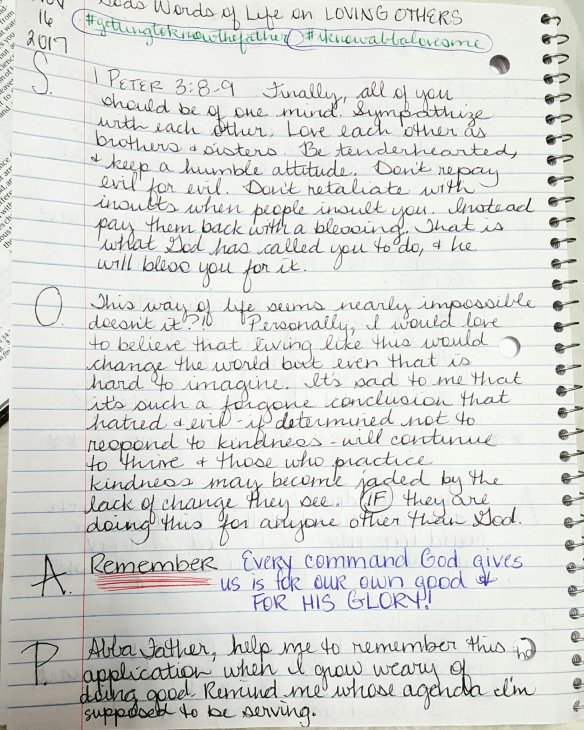 NOV
16
2017
Gods Words of Life on LOVING OTHERS
#gettingtoknowthefather #iknowabbalovesme
S.
1 PETER 3:8-9 Finally, all of you
should be of one mind. Sympathize
with each other. Love each other as
brothers & sisters. Be tenderhearted,
& keep a humble attitude. Don't repay
evil for evil. Don't retaliate with
insults when people insult you. Instead
pay them back with a blessing. That is
what God has called you to do, & he
will bless you for it.
O.
This way of life seems nearly impossible
doesn't it? Personally, I would love
to believe that living like this would
change the world but even that is
hard to imagine. It's sad to me that
it's such a forgone conclusion that
hatred & evil - if determined not to
respond to kindness - will continue
to thrive & those who practice
kindness may become jaded by the
lack of change they see. IF they are
doing this for anyone other than God.
A.
Remember Every command God gives
us is for our own good &
FOR HIS GLORY!
P.
Abba Father, help me to remember this
application when I grow weary of
doing good. Remind me whose agenda I'm
supposed to be serving.